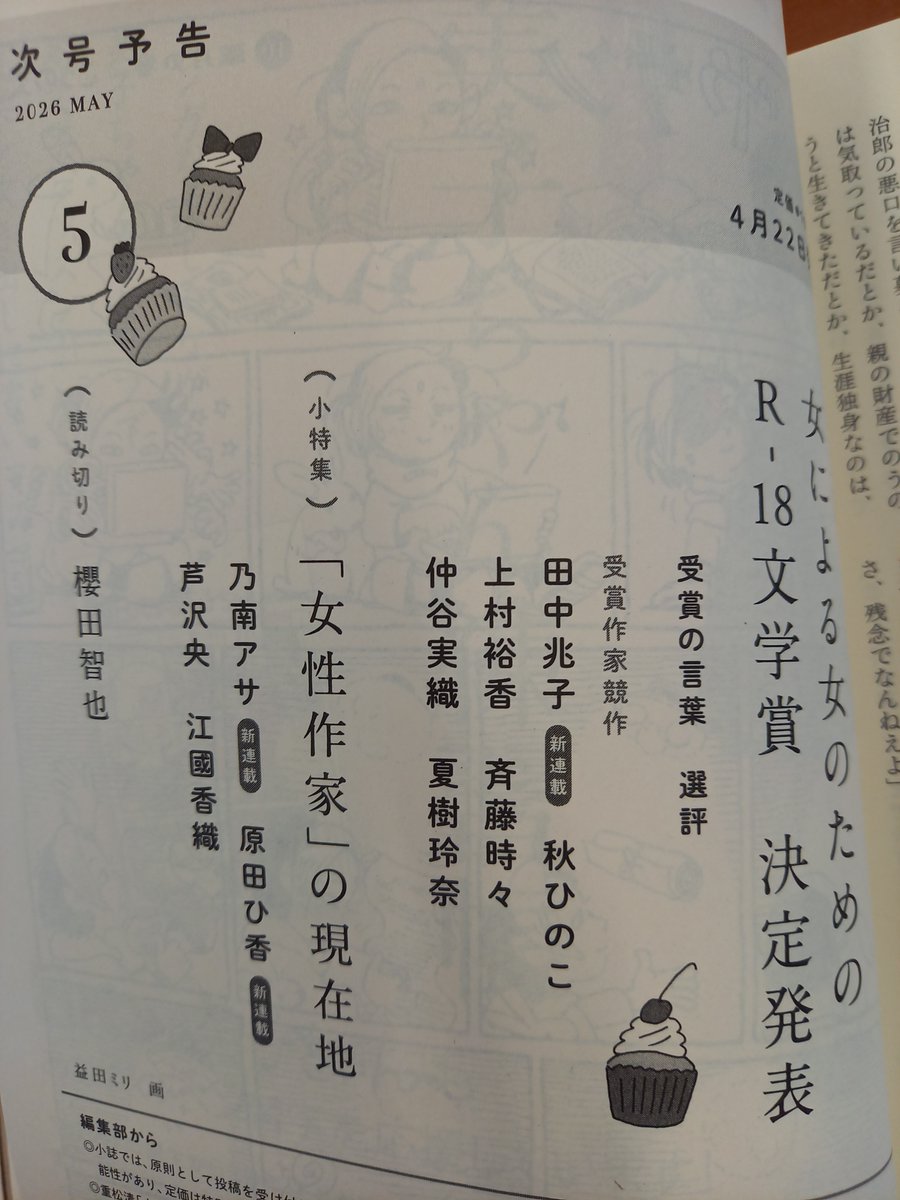 次号予告
2026 MAY
5
4月22日
女による女のための
R-18文学賞 決定発表
受賞の言葉 選評
受賞作家競作
田中兆子 新連載 秋ひのこ
上村裕香 斉藤時々
仲谷実織 夏樹玲奈
(小特集)「女性作家」の現在地
乃南アサ 新連載 原田ひ香 新連載
芦沢央 江國香織
(読み切り) 櫻田智也
益田ミリ 画
編集部から
◎小誌では、原則として投稿を受け付
能性があり、定価は特
治郎の悪口を言い
は気取っているだとか、親の財産でのうの
うと生きてきただとか、生涯独身なのは、
さ、残念でなんねえよ」